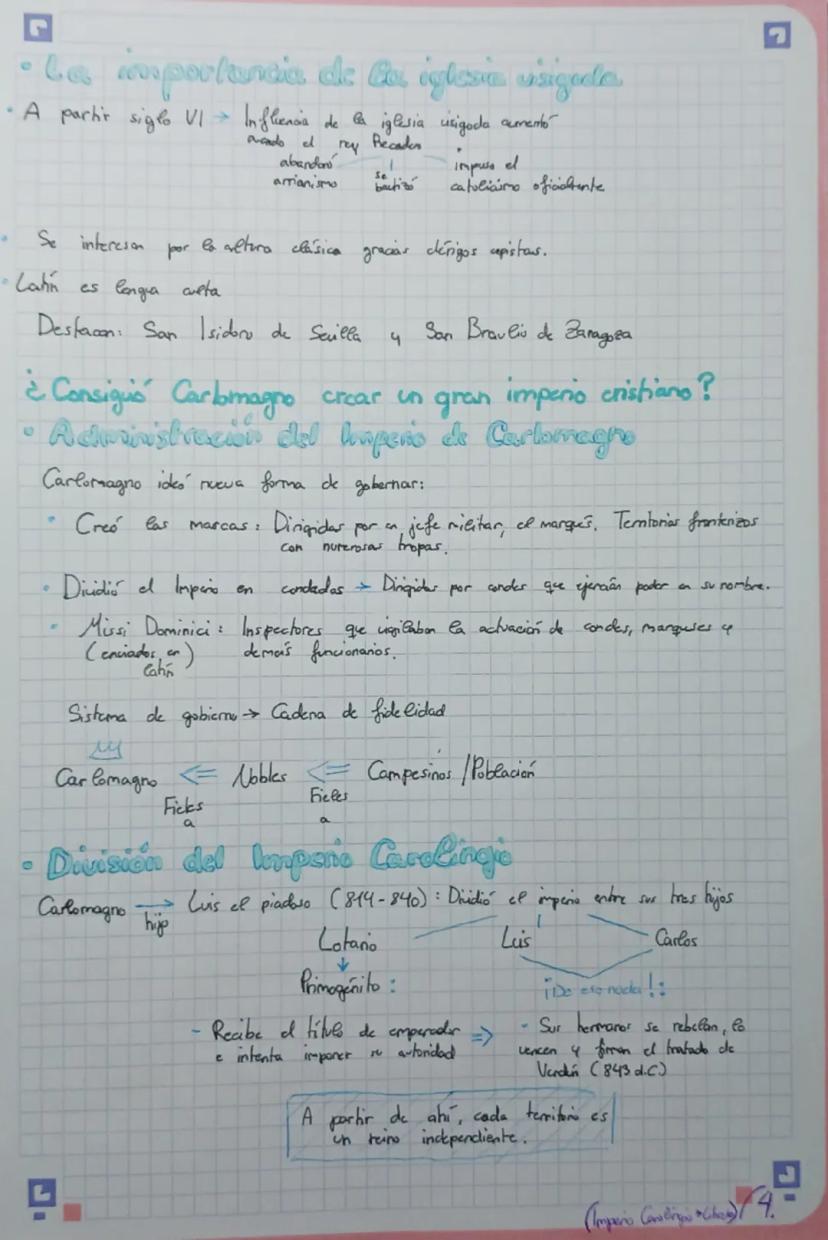 • La importancia de la iglesia visigoda
• A partir siglo VI → Influencia de la iglesia visigoda aumentó
cuando el rey Recaredo
abandonó arrianismo
se bautizó
impuso el catolicismo oficialmente
• Se interesan por la cultura clásica gracias clérigos copistas.
• Latín es lengua culta
Destacan: San Isidoro de Sevilla y San Braulio de Zaragoza
¿Consiguió Carlomagno crear un gran imperio cristiano?
• Administración del Imperio de Carlomagno
Carlomagno ideó nueva forma de gobernar:
• Creó las marcas: Dirigidas por un jefe militar, el marqués. Territorios fronterizos
con numerosas tropas.
• Dividió el Imperio en condados → Dirigidos por condes que ejercían poder en su nombre.
• Missi Dominici: Inspectores que vigilaban la actuación de condes, marqueses y
(enviados en latín) demás funcionarios.
Sistema de gobierno → Cadena de fidelidad
Carlomagno <= Nobles <= Campesinos / Población
Fieles a
Fieles a
• División del Imperio Carolingio
Carlomagno → hijo Luis el piadoso (814-840): Dividió el imperio entre sus tres hijos
Lotario Luis Carlos
↓
Primogénito: ¡De eso nada!:
- Recibe el título de emperador => - Sus hermanos se rebelan, lo
e intenta imponer su autoridad vencen y firman el tratado de
Verdún (843 d.C)
A partir de ahí, cada territorio es
un reino independiente.
4.